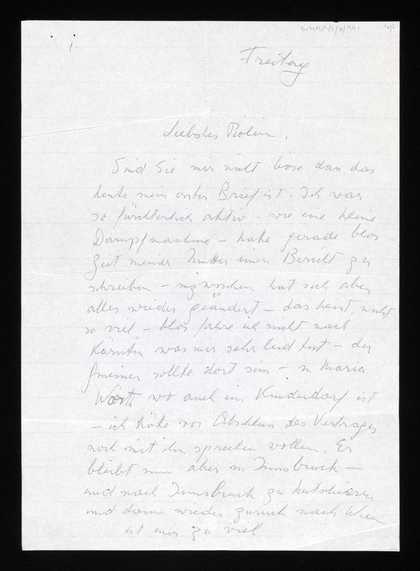 Freitag
Liebstes Robin.
Sind Sie mir nicht böse dan das
heute mein erster Brief ist. Ich war
so fürchterlich aktiv – wie eine kleine
Dampfmaschine – habe gerade blos
Zeit meiner Mutter einen Bericht zu
schreiben – inzwischen hat sich aber
alles wieder geändert – das heist nicht
so viel – blos fahre ich nicht nach
Kärnten was mir sehr leid tut – der
sollte dort sein – in Maria
Wörth wo auch ein Kinderdorf ist
– ich hätte vor Abschluss des Vertrages
noch mit ihm sprechen wollen. Er
bleibt nun aber in Innsbruck –
und nach Innsbruck zu kutschieren
und dann wieder zurück nach Wien
ist mir zu viel